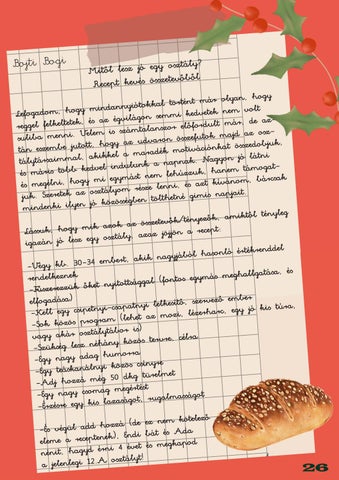 Bojti Bogi
Mitől lesz jó egy osztály?
Recept kevés összetevőből
Lefogadom, hogy mindannyiótokkal történt már olyan, hogy
reggel felkeltetek, és az égvilágon semmi kedvetek nem volt
suliba menni. Velem is számtalanszor előfordult már, de az-
tán eszembe jutott, hogy az udvaron összefutok majd az osz-
tálytársaimmal, akikkel a maradék motivációnkat összedobjuk,
és máris több kedvel indulunk a napnak. Nagyon jó látni
és megélni, hogy mi egymást nem lehúzzuk, hanem támogat-
juk. Szeretek az osztályom része lenni, és azt kívánom, bárcsak
mindenki ilyen jó közösségben tölthetné gimis napjait.
Lássuk, hogy mik azok az összetevők/tényezők, amiktől tényleg
igazán jó lesz egy osztály, azaz jöjjön a recept:
-Végy kb. 30-34 embert, akik nagyjából hasonló értékrenddel
rendelkeznek
-Fűszerezzük őket nyitottsággal (fontos egymás meghallgatása, és
elfogadása)
-Kell egy csipetnyi-csapatnyi lelkesítő, szervező ember
-Sok közös program (lehet az mozi, lézerharc, egy jó kis túra,
vagy akár osztálytábor is)
-Szükség lesz néhány közös tervre, célra
-Egy nagy adag humorra
-Egy teáskanálnyi közös csínyre
-Adj hozzá még 50 dkg türelmet
-Egy nagy csomag megértést
-Ízlésre egy kis lazaságot, rugalmasságot
-És végül add hozzá (de ez nem kötelező
eleme a receptenek), Endi bát és Ada
nénit, hagyd érni 4 évet és megkapod
a jelenlegi 12.A osztályt!
26